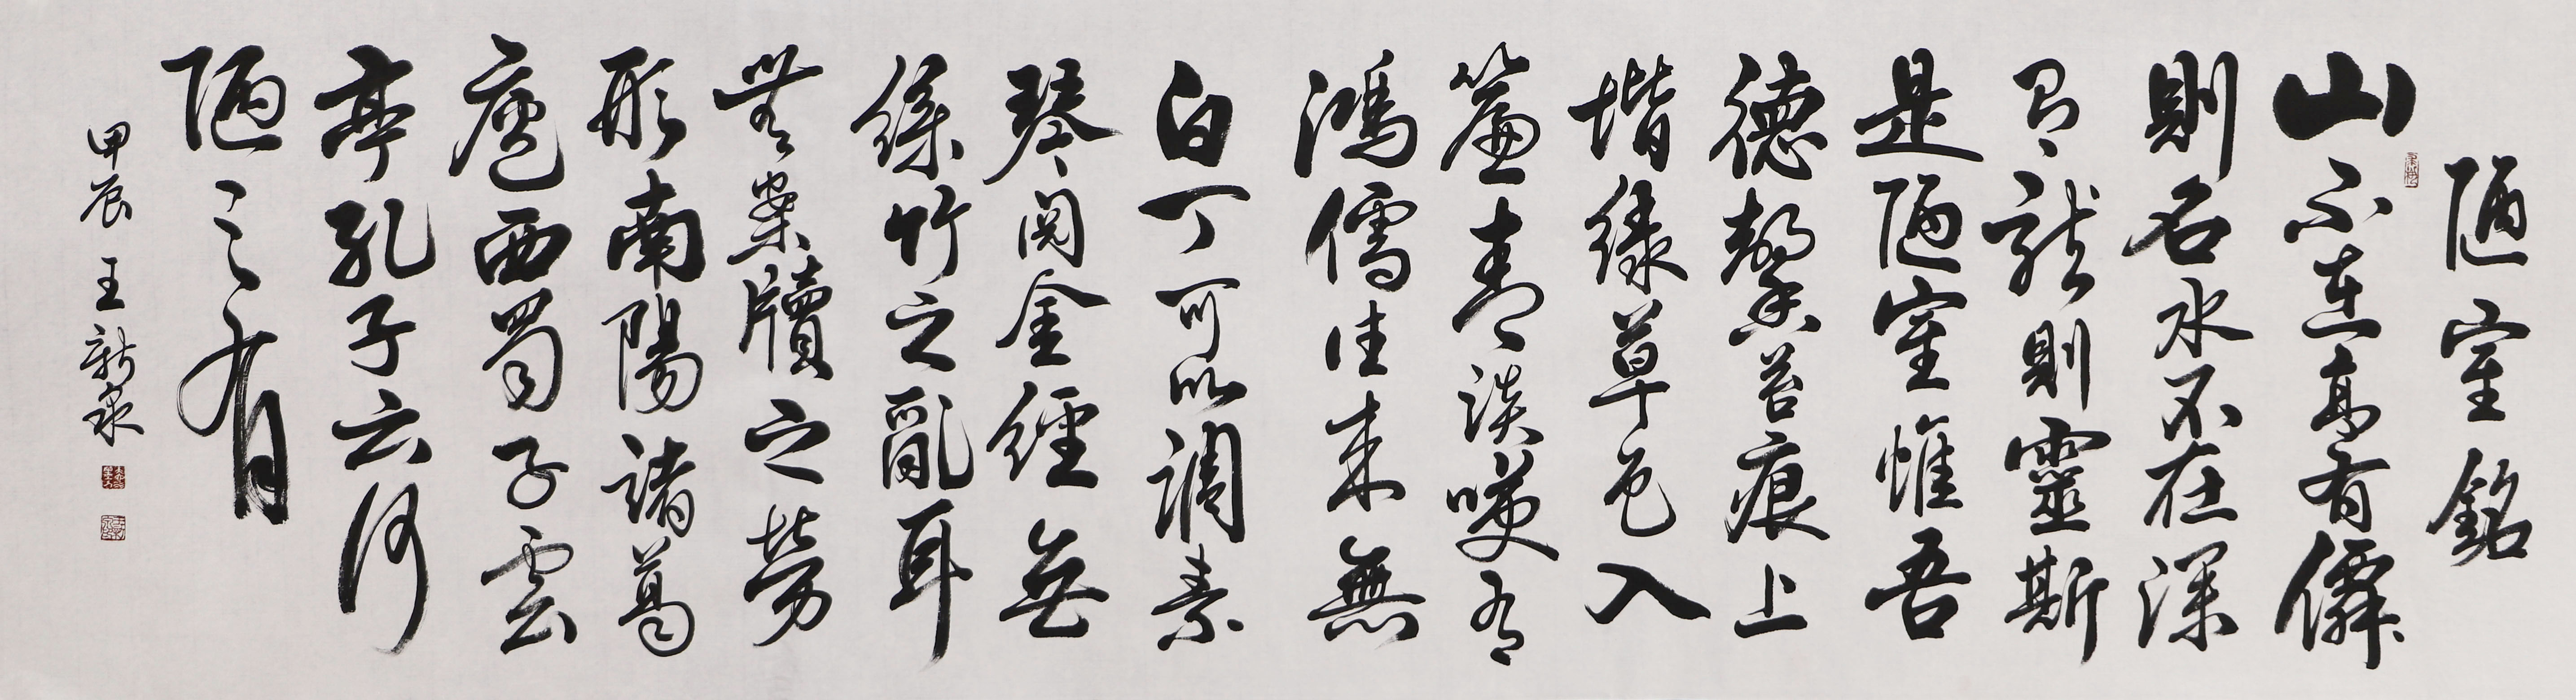 陋室銘
山不在高有僊
則名水不在深
有龍則靈斯
是陋室惟吾
德馨苔痕上
堦綠草色入
簾青談笑有
鴻儒往來無
白丁可以調素
琴閱金經無
絲竹之亂耳
無案牘之勞
形南陽諸葛
廬西蜀子雲
亭孔子云何
陋之有
甲辰王新泉